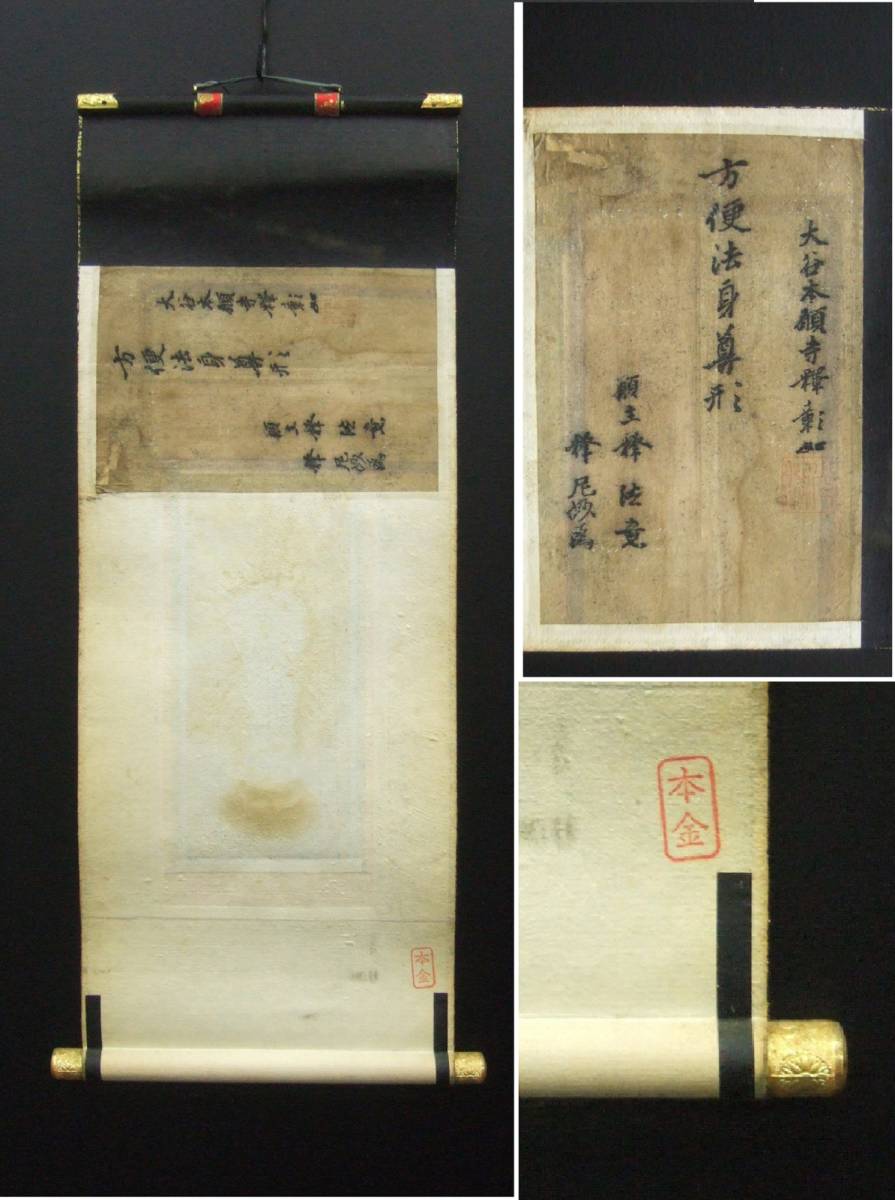 大谷本願寺釋彰如
方便法身尊形
願主釋法意
釋尼妙
大谷本願寺釋彰如
方便法身尊形
願主釋法意
釋尼妙
本金
本金